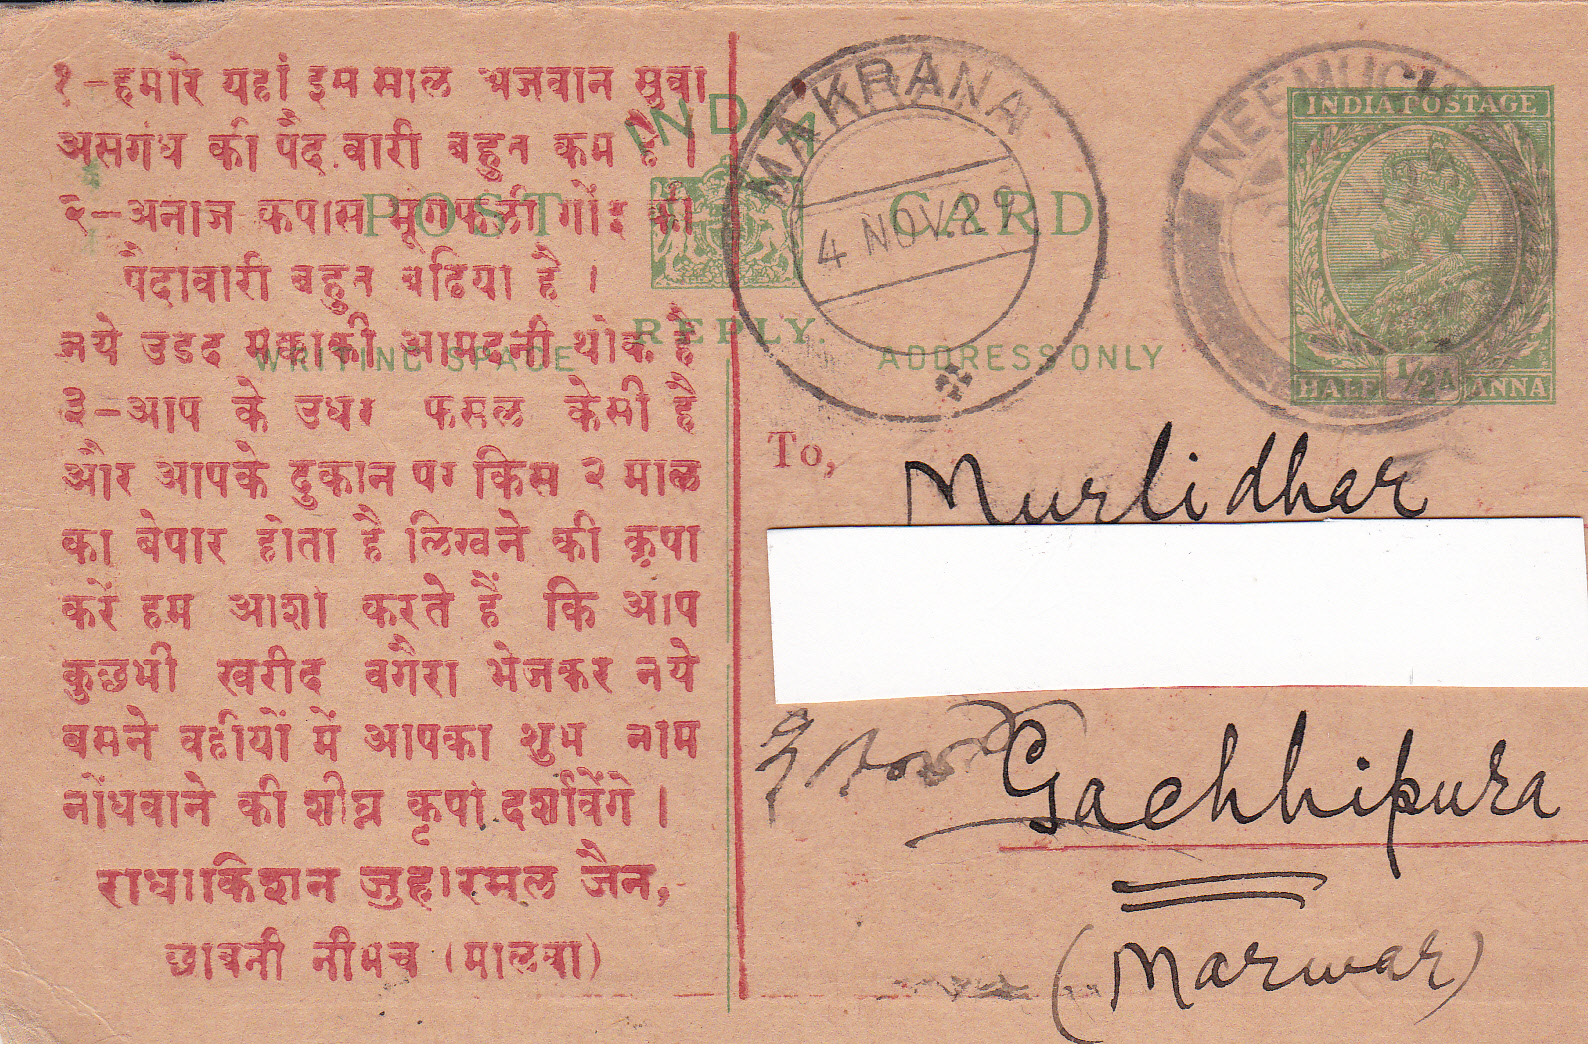 १-हमारे यहां इस साल अजवान सुवा
असगंध की पैद.वारी बहुत कम है ।
२-अनाज कपास मूंगफली गोंद की
पैदावारी बहुत बढिया है ।
नये उडद मक्काकी आमदनी थोक है
३-आप के उधर फसल केसी है
और आपके दुकान पर किस २ माल
का बेपार होता है लिखने की कृपा
करें हम आशा करते हैं कि आप
कुछभी खरीद वगैरा भेजकर नये
बसने वहीयों में आपका शुभ नाम
नोंधवाने की शीघ्र कृपा दर्शावेंगे ।
राधाकिशन जुहारमल जैन,
छावनी नीमच (मालवा)
INDIA
POST CARD
REPLY.
WRITING SPACE
ADDRESS ONLY
MAKRANA
4 NOV.29
NEEMUCH
INDIA POSTAGE
HALF 1/2A ANNA
To,
Murlidhar
Gachhipura
(Marwar)